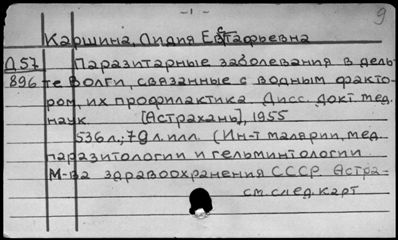 - 1 -
9
Каршина, Лидия Евстафьевна
Д57 Паразитарные заболевания в дель-
896 те Волги, связанные с водным факто-
ром, их профилактика. Дисс. докт. мед.
наук. [Астрахань], 1955
536 л.; 79 л. илл. (Ин-т малярии, мед.
паразитологии и гельминтологии
М-ва здравоохранения СССР Астра-
см. след. карт